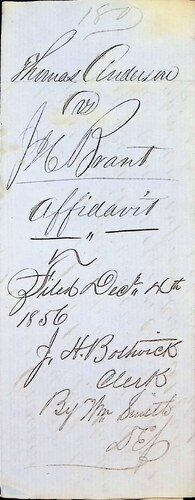 180
Thomas Anderson
vs
J H Brant
Affidavit
"
Filed Decr. 4th
1856
J. H. Bostwick
Clerk
By Wm Smith
D C